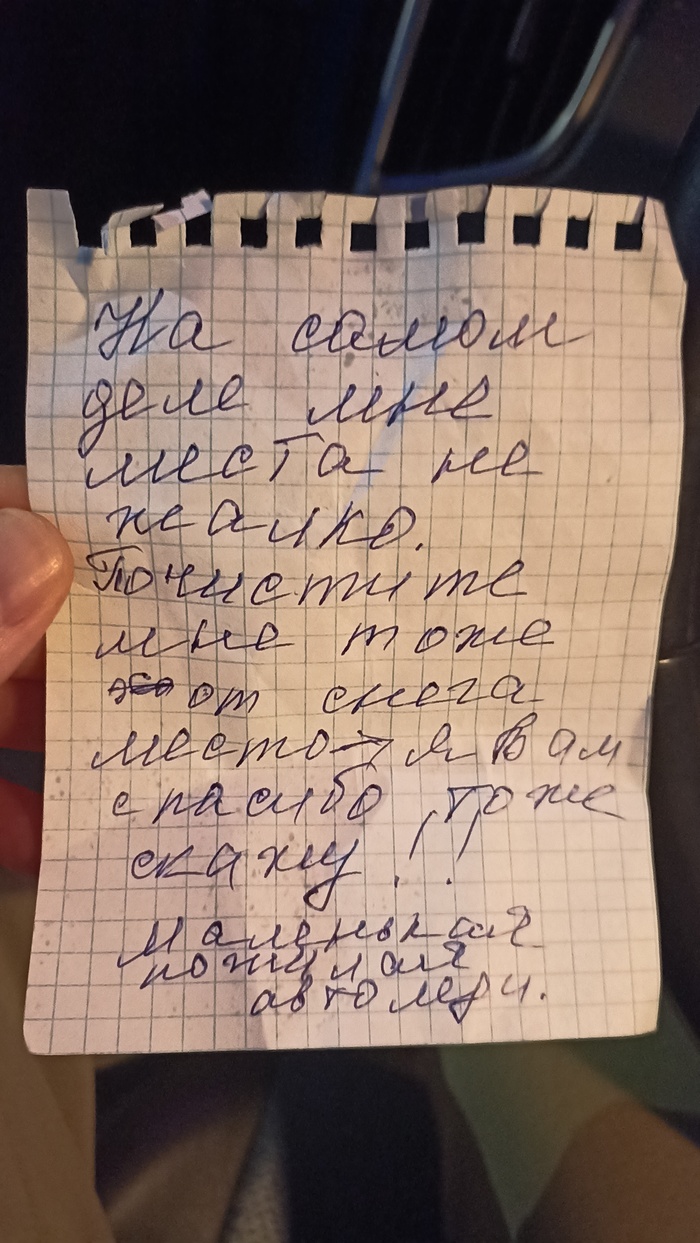 На самом
деле мне
места не
жалко.
Почистите
мне тоже
от снега
место → я Вам
спасибо тоже
скажу!!
Маленькая
пожилая
автоледи.